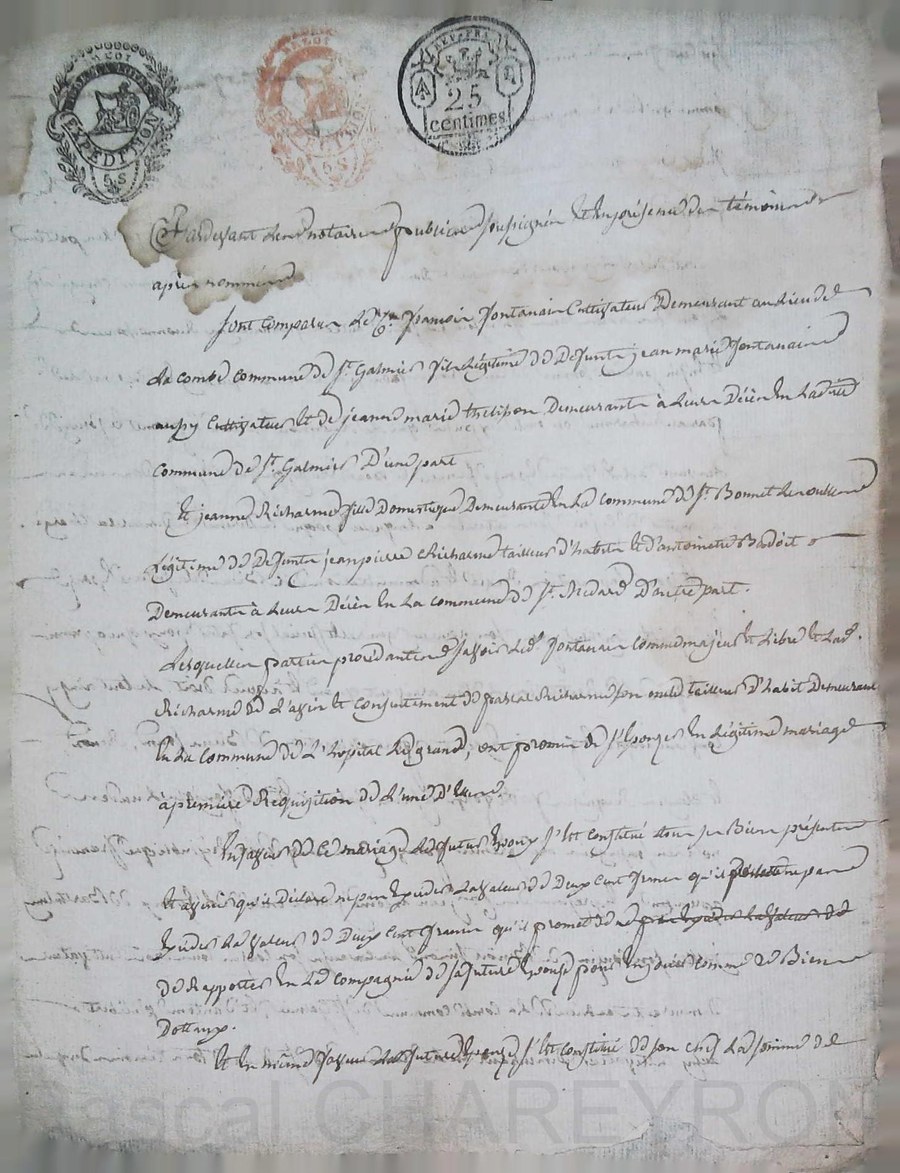 REP. FRA.
25
centimes
EXPEDITION
5 S
EXPEDITION
5 S
Pardevant Les notaires publics soussignés et En présence des témoins
après nommés
sont comparus Le Cen françois fontanais Cultivateur Demeurant au Lieu de
La combe commune de St Galmier fils Légitime de Defunts jean marie fontanais
aussy Cultivateur et de jeanne marie Demeurants à Leurs Décès En Ladite
commune de St Galmier D'une part
Et jeanne Richarme fille Domestique Demeurante En La commune de St Bonnet Les oulles
Légitime de Defunts jean pierre Richarme tailleur d'habits et d'antoinette Badoit
Demeurants à Leurs Décès En La commune de St Medard D'autre part.
Lesquelles parties procédantes savoir Led. fontanais Comme majeur et Libre et Lad.
Richarme de L'avis et Consentement de pascal Richarme son oncle tailleur d'habit Demeurant
En La commune de L'hopital Le grand, ont promis de s'Epouser En Légitime mariage
à première Requisition de L'une D'Elles.
En faveur de Ce mariage Le futur Epoux s'Est Constitué tous ses Biens présents
Et avenirs qu'il Déclare ne pas Excéder La valeur de Deux Cent francs qu'il
Excéder La valeur de Deux Cent francs qu'il promet de ne pas Excéder La valeur de
De Rapporter En La Compagnie de sa future Epouse pour En jouir comme de Biens
Dottaux.
Et En même faveur La future Epouse s'Est Constitué de son chef La somme de
Pascal CHAREYRON